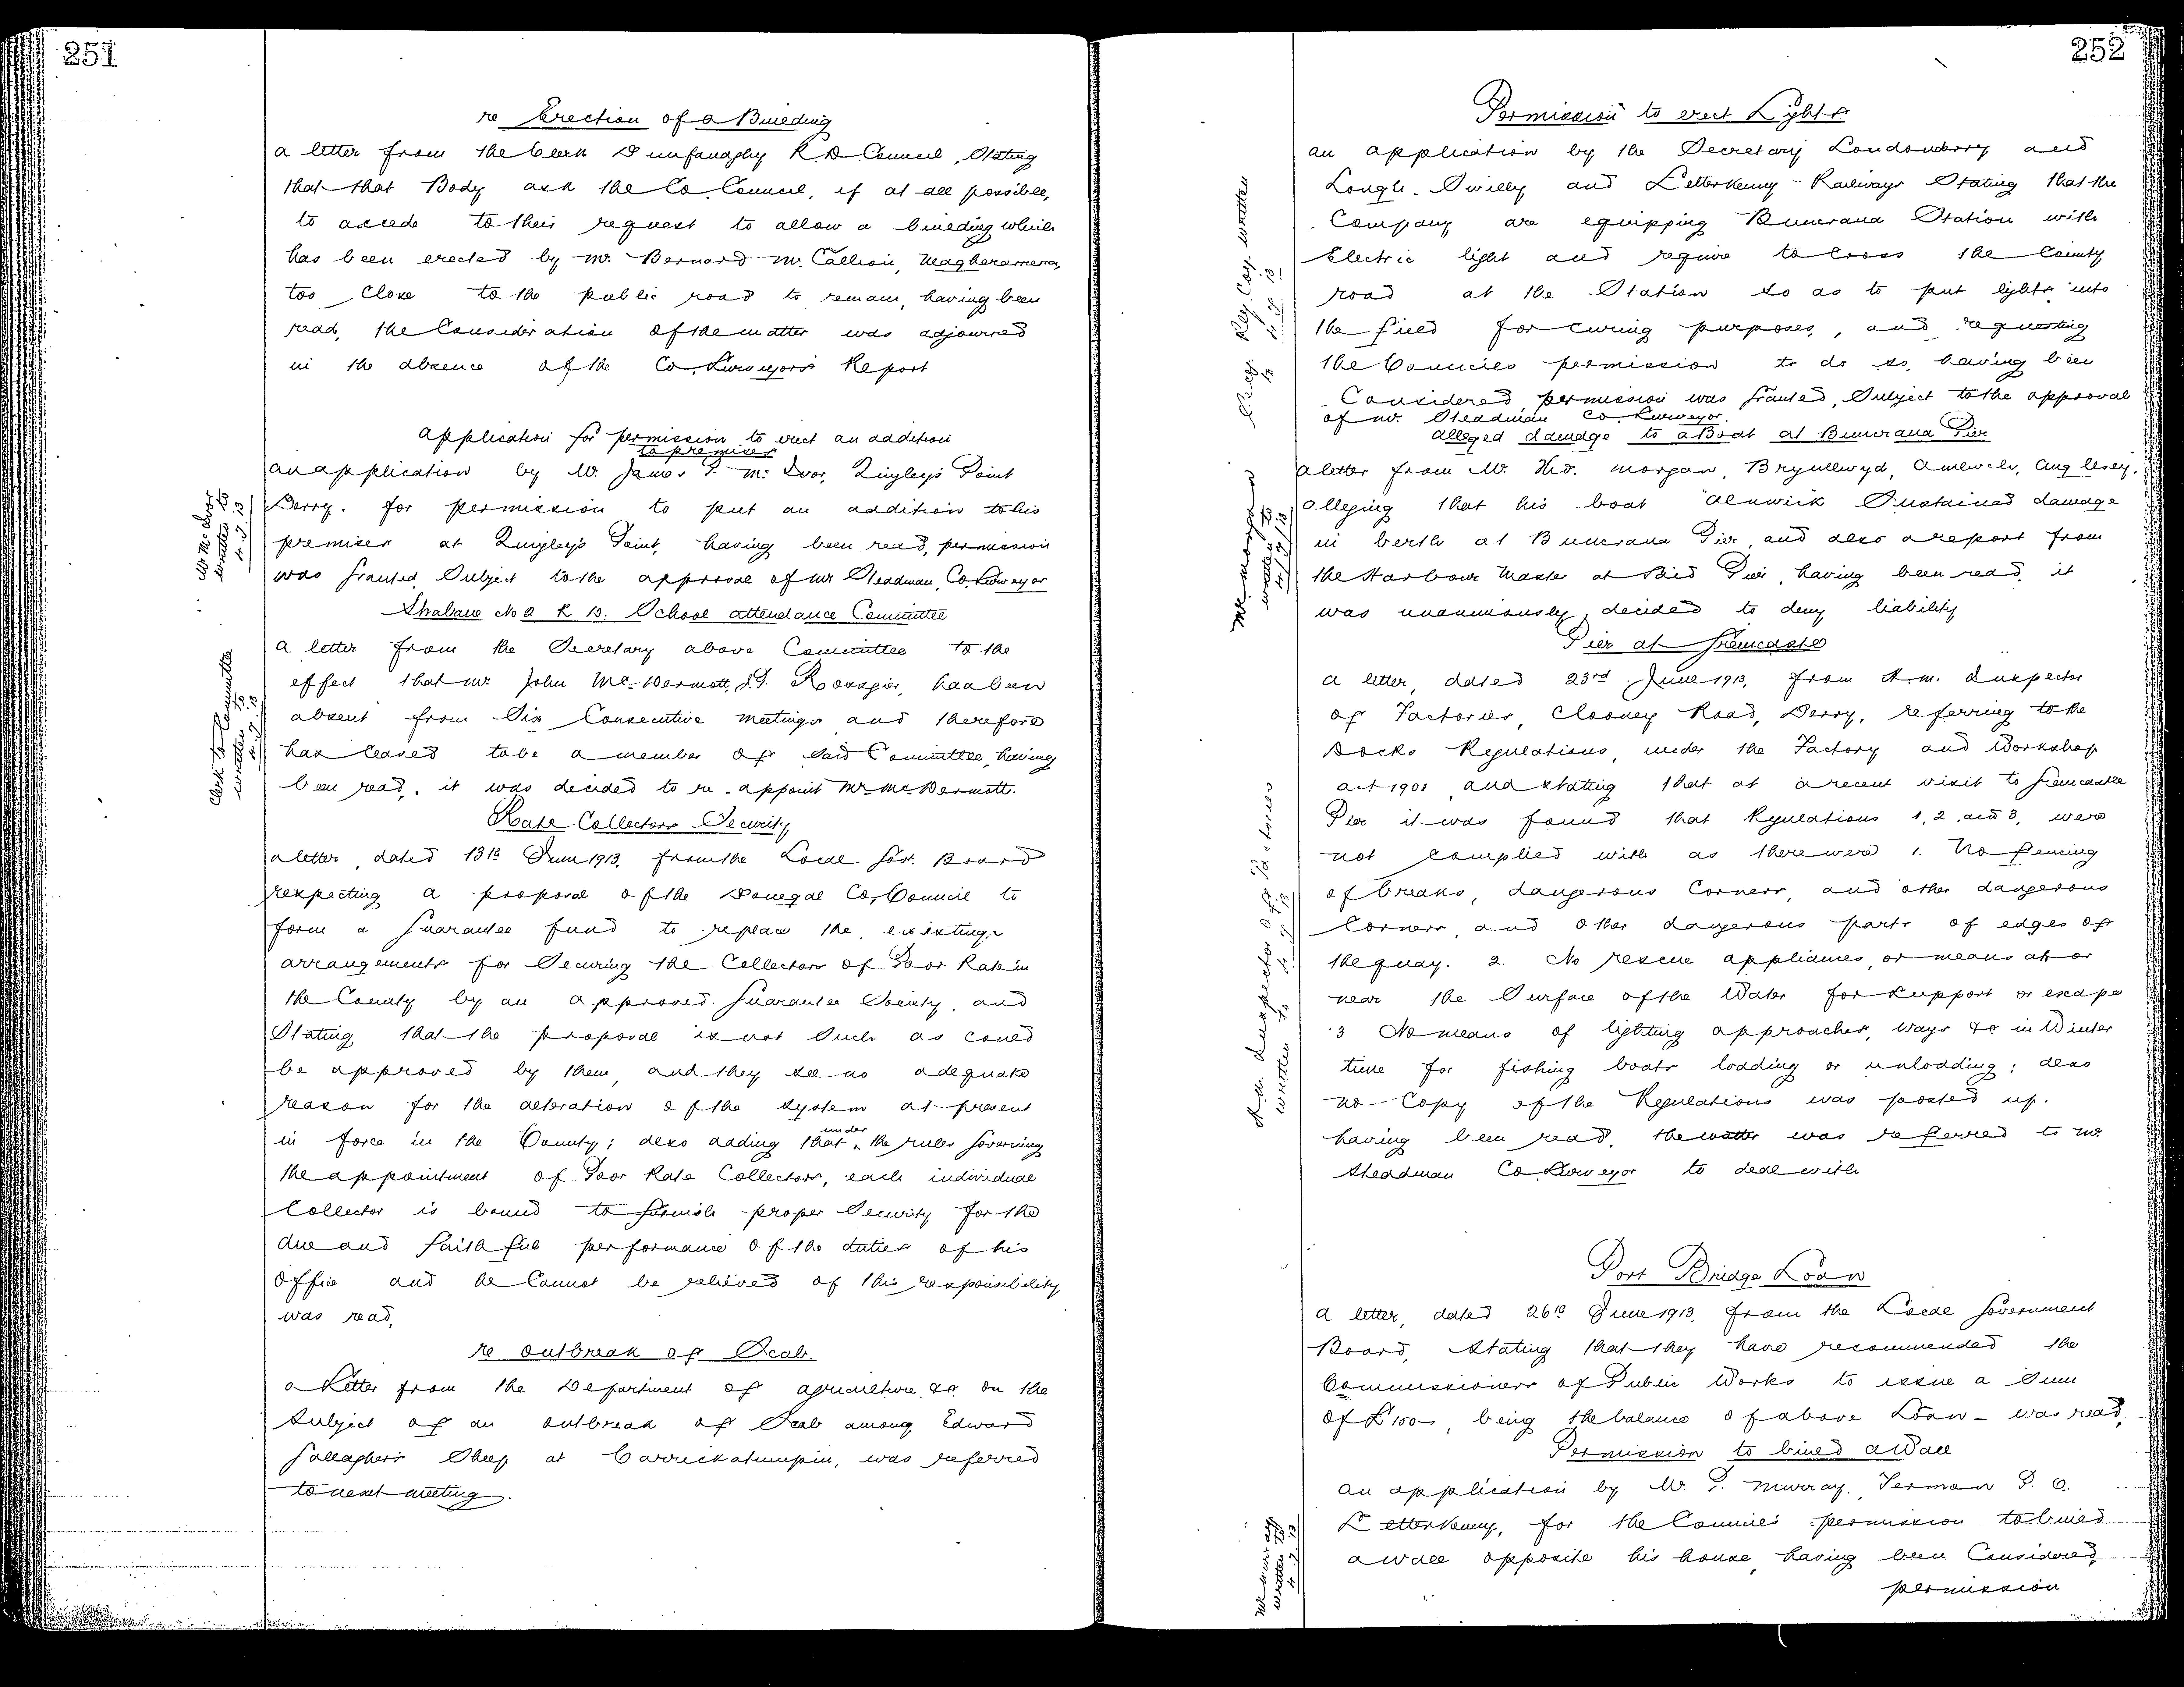 251
re Erection of a Building
a letter from the Clerk Dunfanaghy R D Council, Stating
that that Body ask the Co. Council, if at all possible,
to accede to their request to allow a building which
has been erected by Mr. Bernard Mc. Callion, Magheramena,
too Close to the public road to remain, having been
read, the Consideration of the matter was adjourned
in the absence of the Co. Surveyors Report
Application for permission to erect an addition
to premises
an application by Mr. James P. Mc. Ivor, Quigley's Point
Derry. for permission to put an addition to his
premises at Quigley's Point, having been read, permission
was granted, Subject to the approval of Mr Steadman, Co. Surveyor
Mr. Mc Ivor
written to
4.7.13
Strabane No 2 R D. School attendance Committee
a letter from the Secretary above Committee to the
effect that Mr John Mc. Dermott, J.P. has been
absent from Six Consecutive meetings and therefore
has ceased to be a member of Said Committee, having
been read, it was decided to re-appoint Mr. McDermott.
Clerk to Committee
written to
4.7.13
Rate Collectors Security
a letter, dated 13th June 1913, from the Local Govt. Board
respecting a proposal of the Donegal Co. Council to
form a Guarantee fund to replace the existing
arrangements for Securing the Collectors of Poor Rate in
the County by an approved Guarantee Society, and
Stating that the proposal is not Such as could
be approved by them, and they see no adequate
reason for the alteration of the system at present
in force in the County; also adding that under the rules Governing
the appointment of Poor Rate Collectors, each individual
Collector is bound to furnish proper Security for the
due and faithful performance of the duties of his
Office and he Cannot be relieved of this responsibility
was read,
re outbreak of Scab.
a Letter from the Department of Agriculture &c. on the
Subject of an outbreak of Scab among Edward
Gallagher's Sheep at Carrickatumpin, was referred
to next meeting.
252
Permission to erect Lights
an application by the Secretary Londonderry and
Lough Swilly and Letterkenny Railways Stating that the
Company are equipping Buncrana Station with
Electric light and require to Cross the County
road at the Station so as to put lights into
the field for curing purposes, and requesting
the Councils permission to do so, having been
Considered permission was granted, Subject to the approval
of Mr. Steadman Co. Surveyor.
Rly. Coy. written
to 4.7.13
Alleged damage to a Boat at Buncrana Pier
a letter from Mr. Thos. Morgan, Brynllwyd, Amlwch, Anglesey,
alleging that his boat "Alnwick Sustained damage
in berth at Buncrana Pier, and also a report from
the Harbour Master at Said Pier, having been read, it
was unanimously decided to deny liability
Mr. Morgan
written to
4/7/13
Pier at Greencastle
a letter, dated 23rd June 1913, from H.M. Inspector
of Factories, Clooney Road, Derry, referring to the
Docks Regulations, under the Factory and Workshop
act 1901, and stating that at a recent visit to Greencastle
Pier it was found that Regulations 1, 2 and 3, were
not Complied with as there were 1. No fencing
of breaks, dangerous Corners, and other dangerous
Corners, and other dangerous parts of edges of
the quay. 2. No rescue appliances, or means at or
near the Surface of the Water for support or escape
3 No means of lighting approaches, ways &c in Winter
time for fishing boats loading or unloading; also
no Copy of the Regulations was posted up.
having been read, the matter was referred to Mr.
Steadman Co. Surveyor to deal with
H.M. Inspector of Factories
written to 4.7.13
Port Bridge Loan
a letter, dated 26th June 1913, from the Local Government
Board, Stating that they have recommended the
Commissioners of Public Works to issue a Sum
of £100-, being the balance of above Loan - was read,
Permission to build a Wall
an application by Mr. P. Murray, Termon P. O.
Letterkenny, for the Council's permission to build
a wall opposite his house, having been Considered,
permission
written to
4.7.13